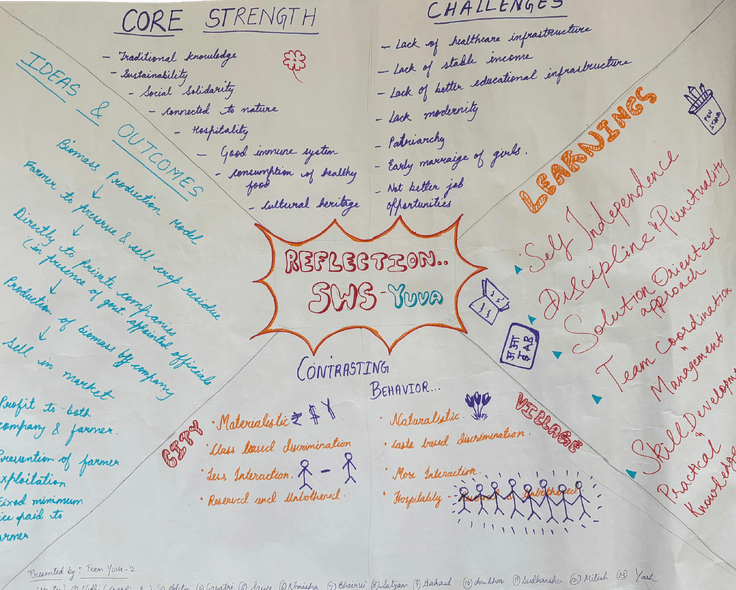 CORE STRENGTH
- Traditional knowledge
- Sustainability
- Social Solidarity
- connected to nature
- Hospitality
- Good immune system
- consumption of healthy
food
- cultural heritage
CHALLENGES
- Lack of healthcare infrastructure
- Lack of stable income
- Lack of better educational infrastructure
- Lack modernity
- Patriarchy
- Early marraige of girls.
- Not better job
opportunities
IDEAS & OUTCOMES
Biomass Production Model
Farmer to preserve & sell crop residue
Directly to private companies
(in presence of govt. appointed officials
Production of biomass by company
Sell in market
Profit to both
company & farmer.
Prevention of farmer
exploitation
Fixed minimum
paid to
LEARNINGS
PEN
STAND
Self Independence
Discipline & Punctuality
Solution Oriented
approach
Team Coordination
"
Management
Skill Development
"
Practical
Knowledge
REFLECTION..
SWS-YUVA
CONTRASTING
BEHAVIOR...
CITY
• Materialistic ₹ $ ¥
• Class based discrimination
• Less Interaction.
• Reserved and Unbothered.
VILLAGE
• Naturalistic
• Caste based discrimination.
• More Interaction.
• Hospitality
Presented by: Team Yuva-2
Gayatri Nimisha Satyam Aakash Anubhav Sudhanshu Mitesh Yash